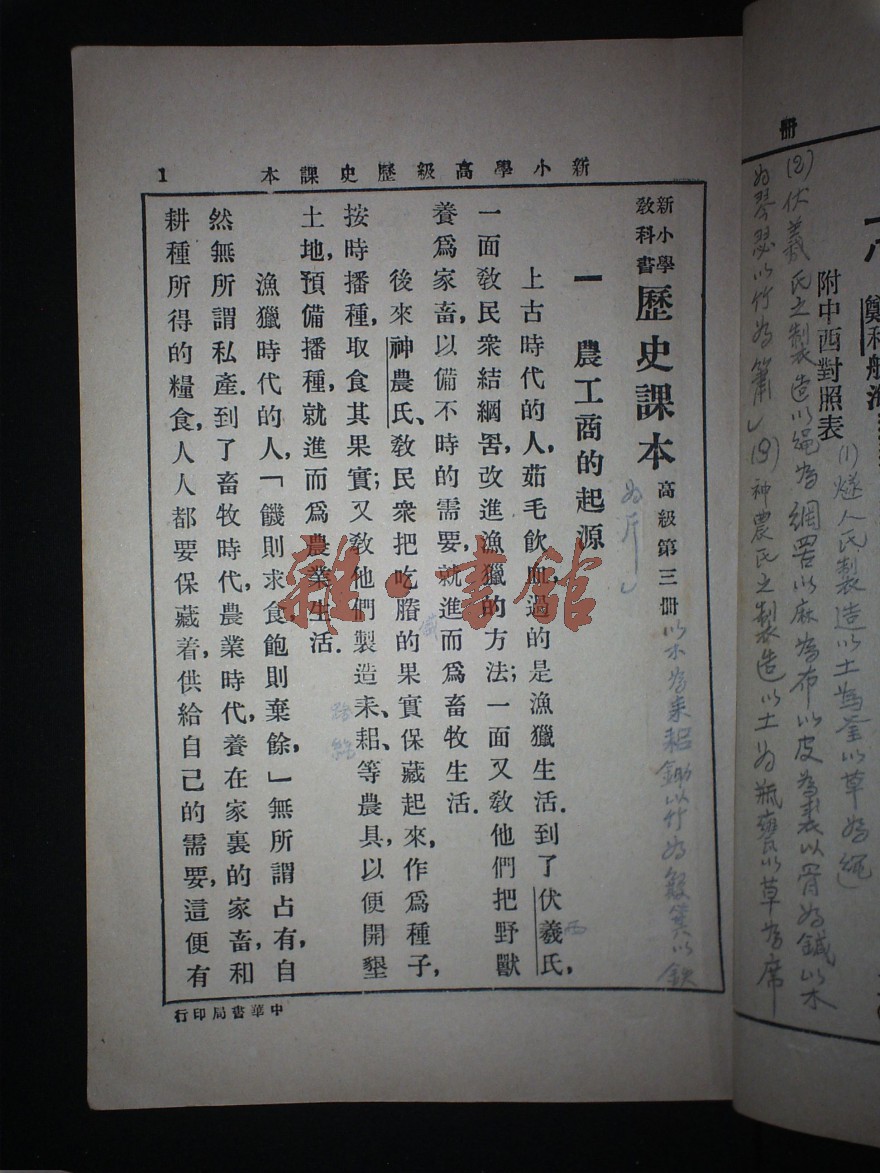 冊
附中西對照表
(1) 燧人氏製造以土為釜以草為繩
(2) 伏羲氏之製造以繩為網罟以麻為布以皮為裘以骨為鍼以木
為琴瑟以竹為簫 (3) 神農氏之製造以土為瓶甕以草為席
以木為耒耜鋤以竹為
為斤
新小學高級歷史課本
1
新小學教科書 歷史課本 高級第三冊
一 農工商的起源
上古時代的人,茹毛飲血,過的是漁獵生活.到了伏羲氏,
一面教民衆結網罟,改進漁獵的方法;一面又教他們把野獸
養爲家畜,以備不時的需要,就進而爲畜牧生活.
後來神農氏、教民衆把吃賸的果實保藏起來,作爲種子,
按時播種,取食其果實;又教他們製造耒、耜、等農具,以便開墾
土地,預備播種,就進而爲農業生活.
漁獵時代的人,「饑則求食,飽則棄餘,」無所謂占有,自
然無所謂私產.到了畜牧時代,農業時代,養在家裏的家畜,和
耕種所得的糧食,人人都要保藏着,供給自己的需要,這便有
西
中華書局印行
雜·書館